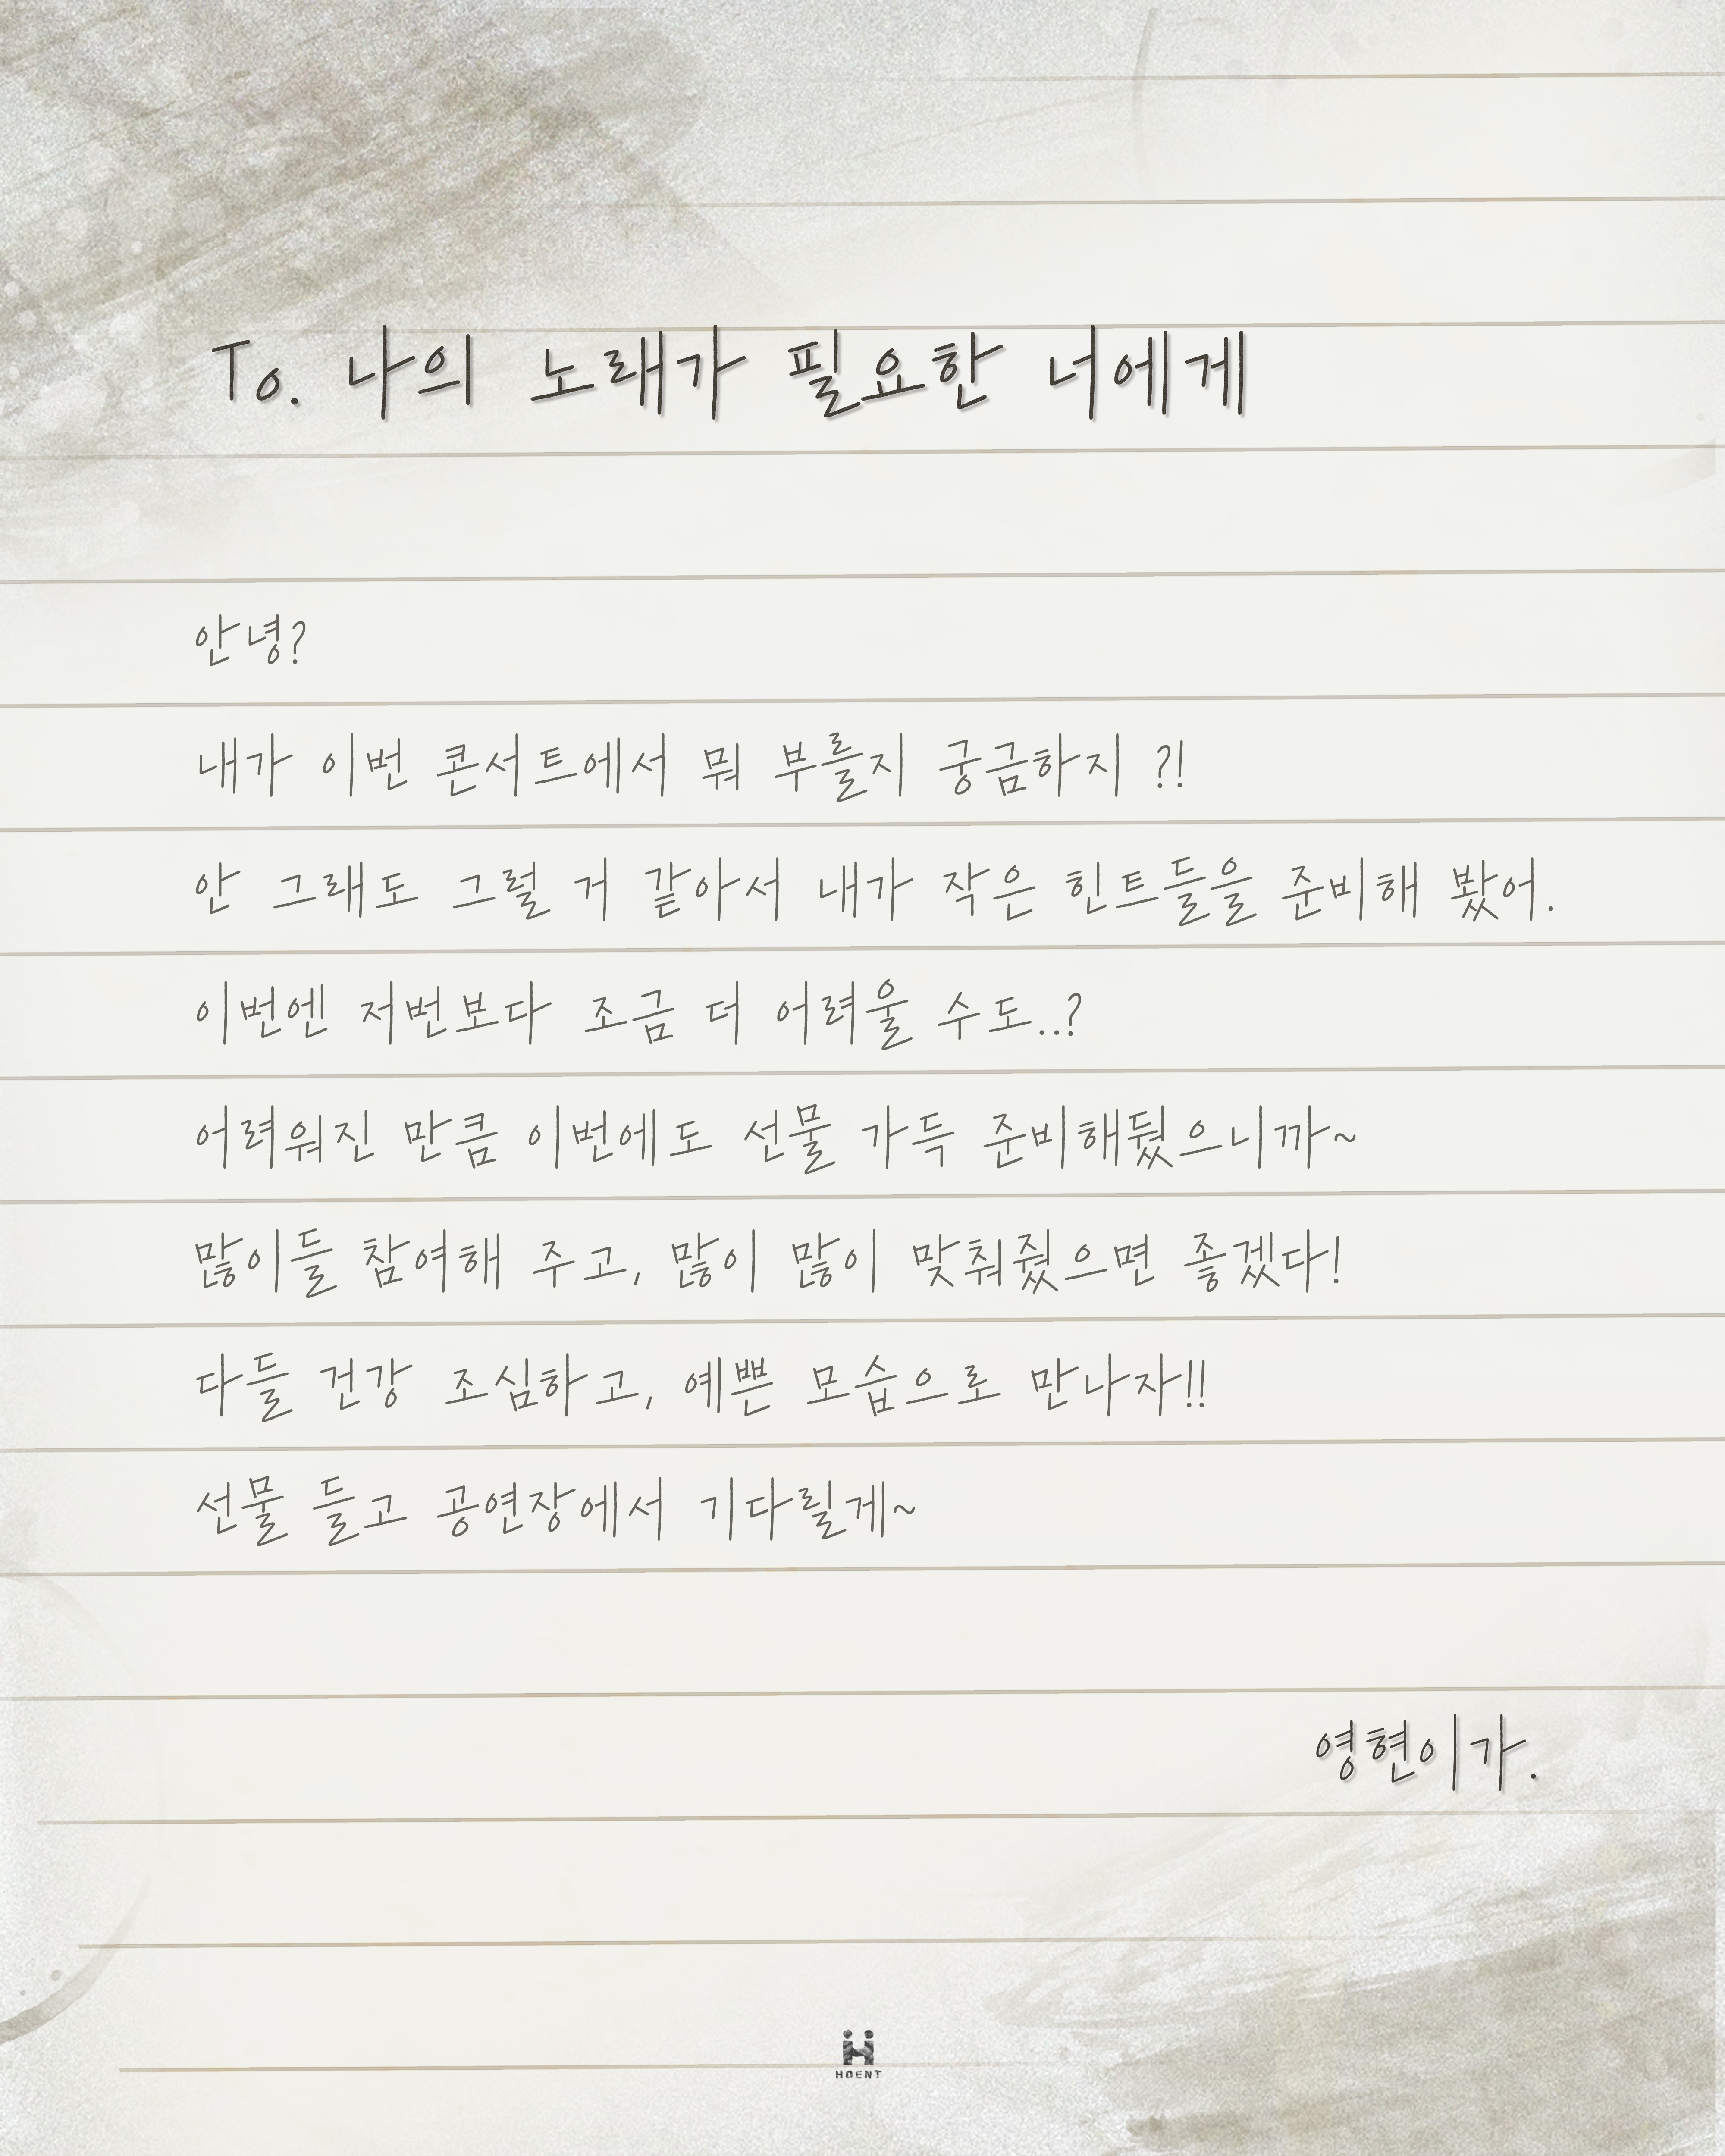 To. 나의 노래가 필요한 너에게
안녕?
내가 이번 콘서트에서 뭐 부를지 궁금하지 ?!
안 그래도 그럴 거 같아서 내가 작은 힌트들을 준비해 봤어.
이번엔 저번보다 조금 더 어려울 수도..?
어려워진 만큼 이번에도 선물 가득 준비해뒀으니까~
많이들 참여해 주고, 많이 많이 맞춰줬으면 좋겠다!
다들 건강 조심하고, 예쁜 모습으로 만나자!!
선물 들고 공연장에서 기다릴게~
영현이가.
HOENT